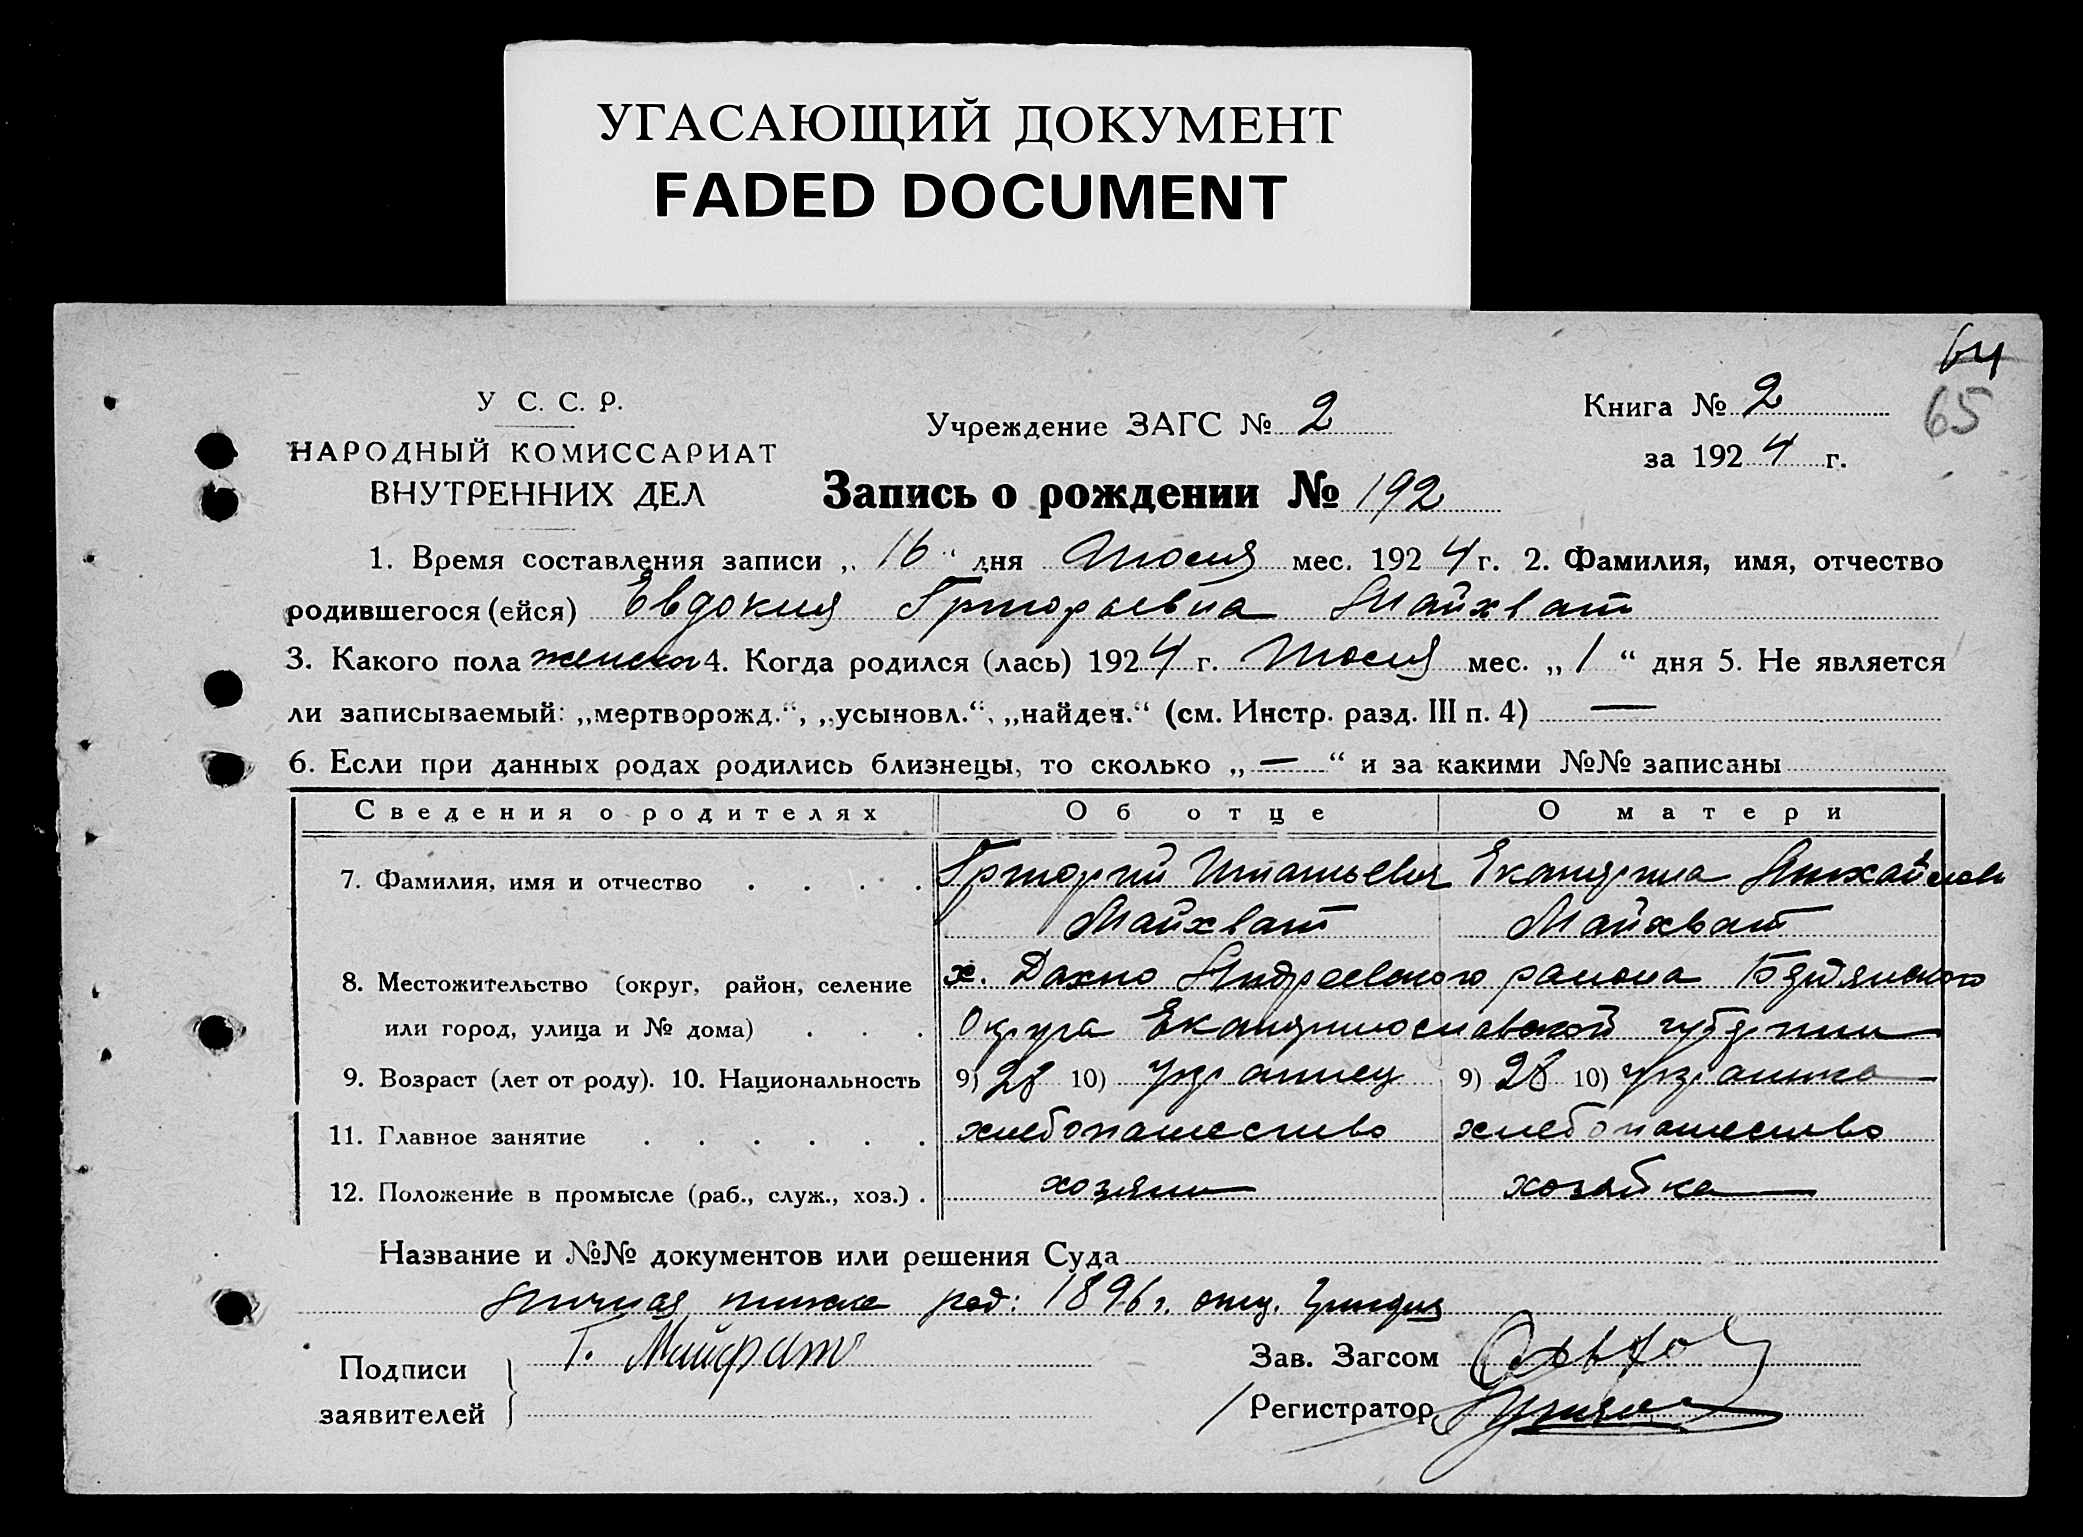 УГАСАЮЩИЙ ДОКУМЕНТ
FADED DOCUMENT
64
65
У С. С. Р.
НАРОДНЫЙ КОМИССАРИАТ
ВНУТРЕННИХ ДЕЛ
Учреждение ЗАГС № 2
Книга № 2
за 1924 г.
Запись о рождении № 192
1. Время составления записи „16“ дня Июля мес. 1924 г. 2. Фамилия, имя, отчество
родившегося (ейся) Евдокия Григорьевна Майхват
3. Какого пола женск 4. Когда родился (лась) 1924 г. Июля мес. „1“ дня 5. Не является
ли записываемый: „мертворожд.“, „усыновл.“, „найден.“ (см. Инстр. разд. III п. 4) —
6. Если при данных родах родились близнецы, то сколько „—“ и за какими №№ записаны
Сведения о родителях Об отце О матери
7. Фамилия, имя и отчество Григорий Игнатьевич Екатерина Михайлов
Майхват Майхват
8. Местожительство (округ, район, селение х. Дахно Андреевского района Бердянского
или город, улица и № дома) Округа Екатеринославской губернии
9. Возраст (лет от роду). 10. Национальность 9) 28 10) украинец 9) 28 10) украинка
11. Главное занятие хлебопашество хлебопашество
12. Положение в промысле (раб., служ., хоз.) хозяин хозяйка
Название и №№ документов или решения Суда
1896 г.
Подписи заявителей Г. Майфат
Зав. Загсом
Регистратор